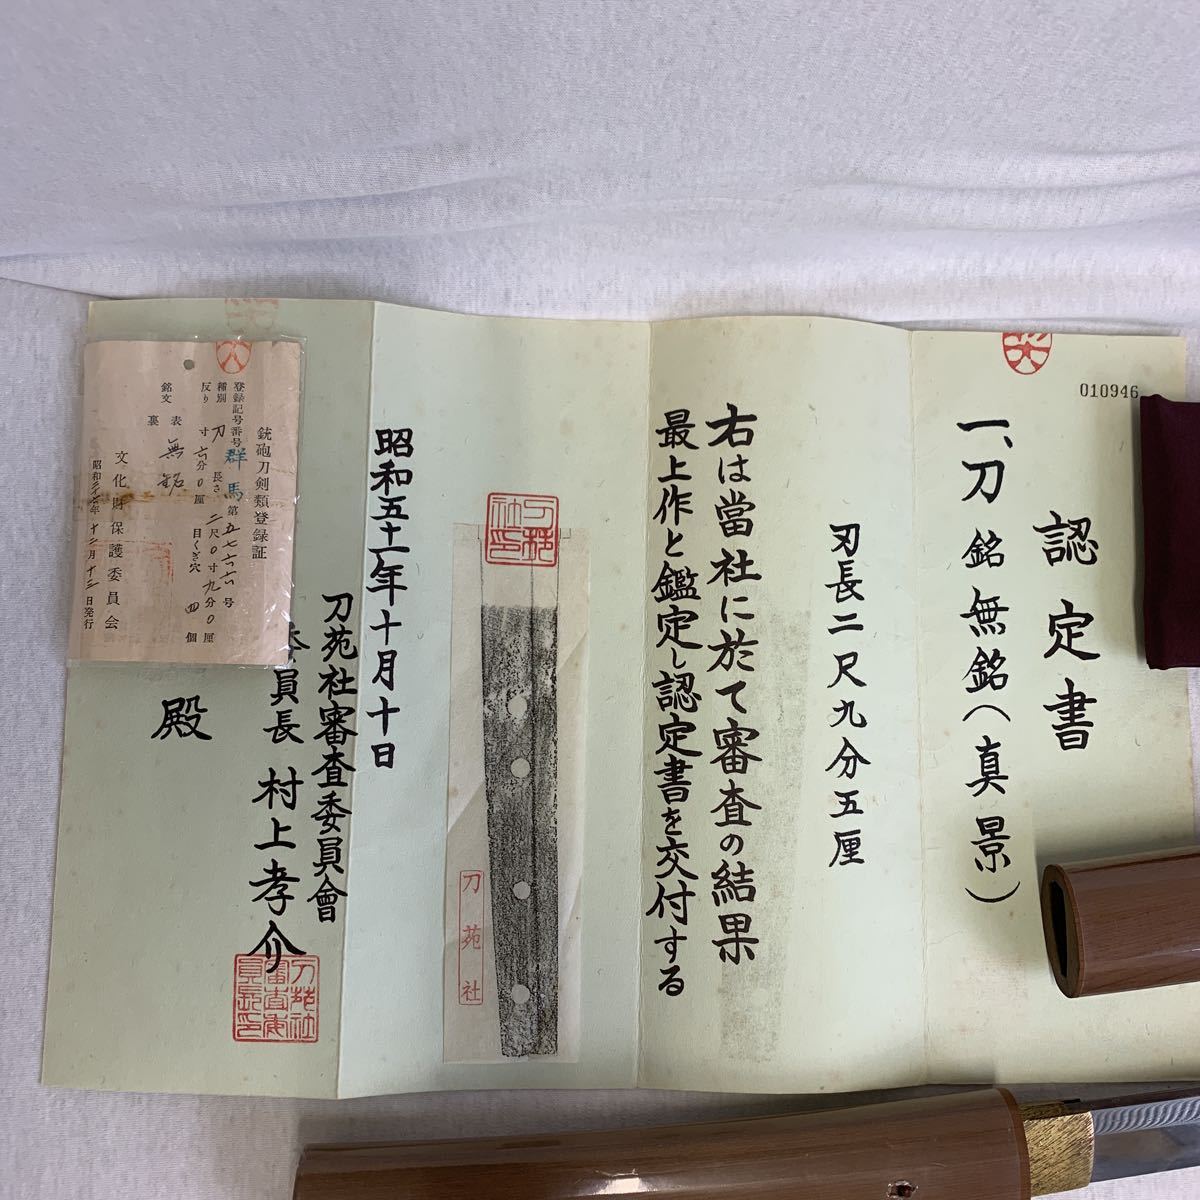 010946
認定書
一、刀 銘 無銘(真景)
刃長二尺九分五厘
右は當社に於て審査の結果
最上作と鑑定し認定書を交付する
刀苑社
昭和五十一年十月十日
刀苑社審査委員會
委員長 村上孝介
殿
銃砲刀剣類登録証
登録記号番号 群馬 第五七六六号
種別 刀 長さ 二尺0寸九分0厘
反り 寸六分0厘 目くぎ穴 四個
銘文 表 無銘
裏
文化財保護委員会
昭和三十七年十二月十二日発行